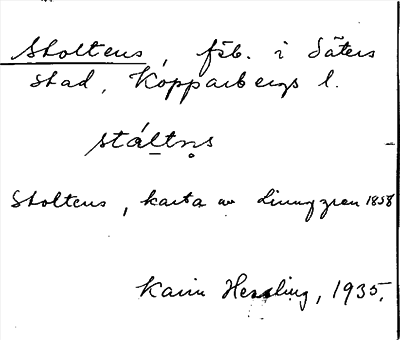 Stoltens, fäb. i Säters
stad, Kopparbergs l.
stáltn̥s
Stoltens, karta av Linnggren 1858
Karin Hessling, 1935.